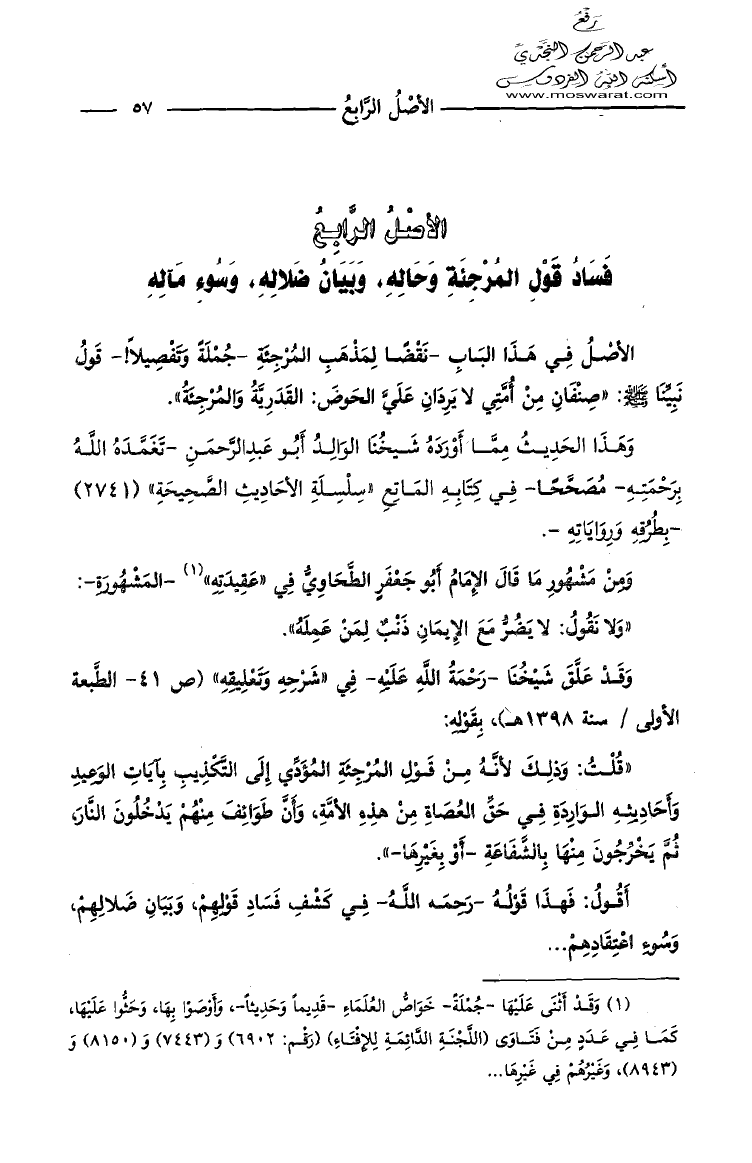 رَفْعُ
عبد الرحمن النجدي
أسكنه الله الفردوس
www.moswarat.com
الأصْلُ الرَّابِعُ ٥٧
الأصْلُ الرَّابِعُ
فَسَادُ قَوْلِ المُرْجِئَةِ وَحَالِهِ، وَبَيَانُ ضَلالِهِ، وَسُوءِ مَآلِهِ
الأصْلُ فِي هَذَا البَابِ -نَقْضًا لِمَذْهَبِ المُرْجِئَةِ -جُمْلَةً وَتَفْصِيلاً!- قَولُ
نَبِيِّنَا ﷺ: «صِنْفَانِ مِنْ أُمَّتِي لا يَرِدَانِ عَلَيَّ الحَوضَ: القَدَرِيَّةُ وَالمُرْجِئَةُ».
وَهَذَا الحَدِيثُ مِمَّا أَوْرَدَهُ شَيخُنَا الوَالِدُ أَبُو عَبدِالرَّحمَنِ -تَغَمَّدَهُ اللَّهُ
بِرَحْمَتِهِ- مُصَحَّحًا- فِي كِتَابِهِ المَاتِعِ «سِلْسِلَةِ الأحَادِيثِ الصَّحِيحَةِ» (٢٧٤١)
-بِطُرُقِهِ وَرِوَايَاتِهِ -.
وَمِنْ مَشْهُورِ مَا قَالَ الإمَامُ أَبُو جَعْفَرٍ الطَّحَاوِيُّ فِي «عَقِيدَتِهِ»(١) -المَشْهُورَةِ-:
«وَلا نَقُولُ: لا يَضُرُّ مَعَ الإيمَانِ ذَنْبٌ لِمَنْ عَمِلَهُ».
وَقَدْ عَلَّقَ شَيْخُنَا -رَحْمَةُ اللَّهِ عَلَيْهِ- فِي «شَرْحِهِ وَتَعْلِيقِهِ» (ص ٤١- الطَّبعة
الأولى / سنة ١٣٩٨هـ)، بِقَوْلِهِ:
«قُلْتُ: وَذلِكَ لأنَّهُ مِنْ قَولِ المُرْجِئَةِ المُؤَدِّي إِلَى التَّكْذِيبِ بِآيَاتِ الوَعِيدِ
وَأَحَادِيثِهِ الوَارِدَةِ فِي حَقِّ العُصَاةِ مِنْ هذِهِ الأمَّةِ، وَأَنَّ طَوَائِفَ مِنْهُمْ يَدْخُلُونَ النَّارَ،
ثُمَّ يَخْرُجُونَ مِنْهَا بِالشَّفَاعَةِ -أَوْ بِغَيْرِهَا-».
أَقُولُ: فَهذَا قَوْلُهُ -رَحِمَه اللَّهُ- فِي كَشْفِ فَسَادِ قَوْلِهِمْ، وَبَيَانِ ضَلالِهِمْ،
وَسُوءِ اعْتِقَادِهِمْ...
(١) وَقَدْ أَثْنَى عَلَيْهَا -جُمْلَةً- خَوَاصُّ العُلَمَاءِ -قَدِيماً وَحَدِيثاً-، وَأَوْصَوْا بِهَا، وَحَثُّوا عَلَيْهَا،
كَمَا فِي عَدَدٍ مِنْ فَتَاوَى (اللَّجْنَةِ الدَّائِمَةِ لِلإفْتَاءِ) (رَقْم: ٦٩٠٢) وَ (٧٤٤٣) وَ (٨١٥٠) وَ
(٨٩٤٣)، وَغَيْرُهُمْ فِي غَيْرِهَا...